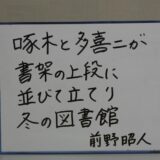 啄木と多喜二が
書架の上段に
並びて立てり
冬の図書館
前野昭人